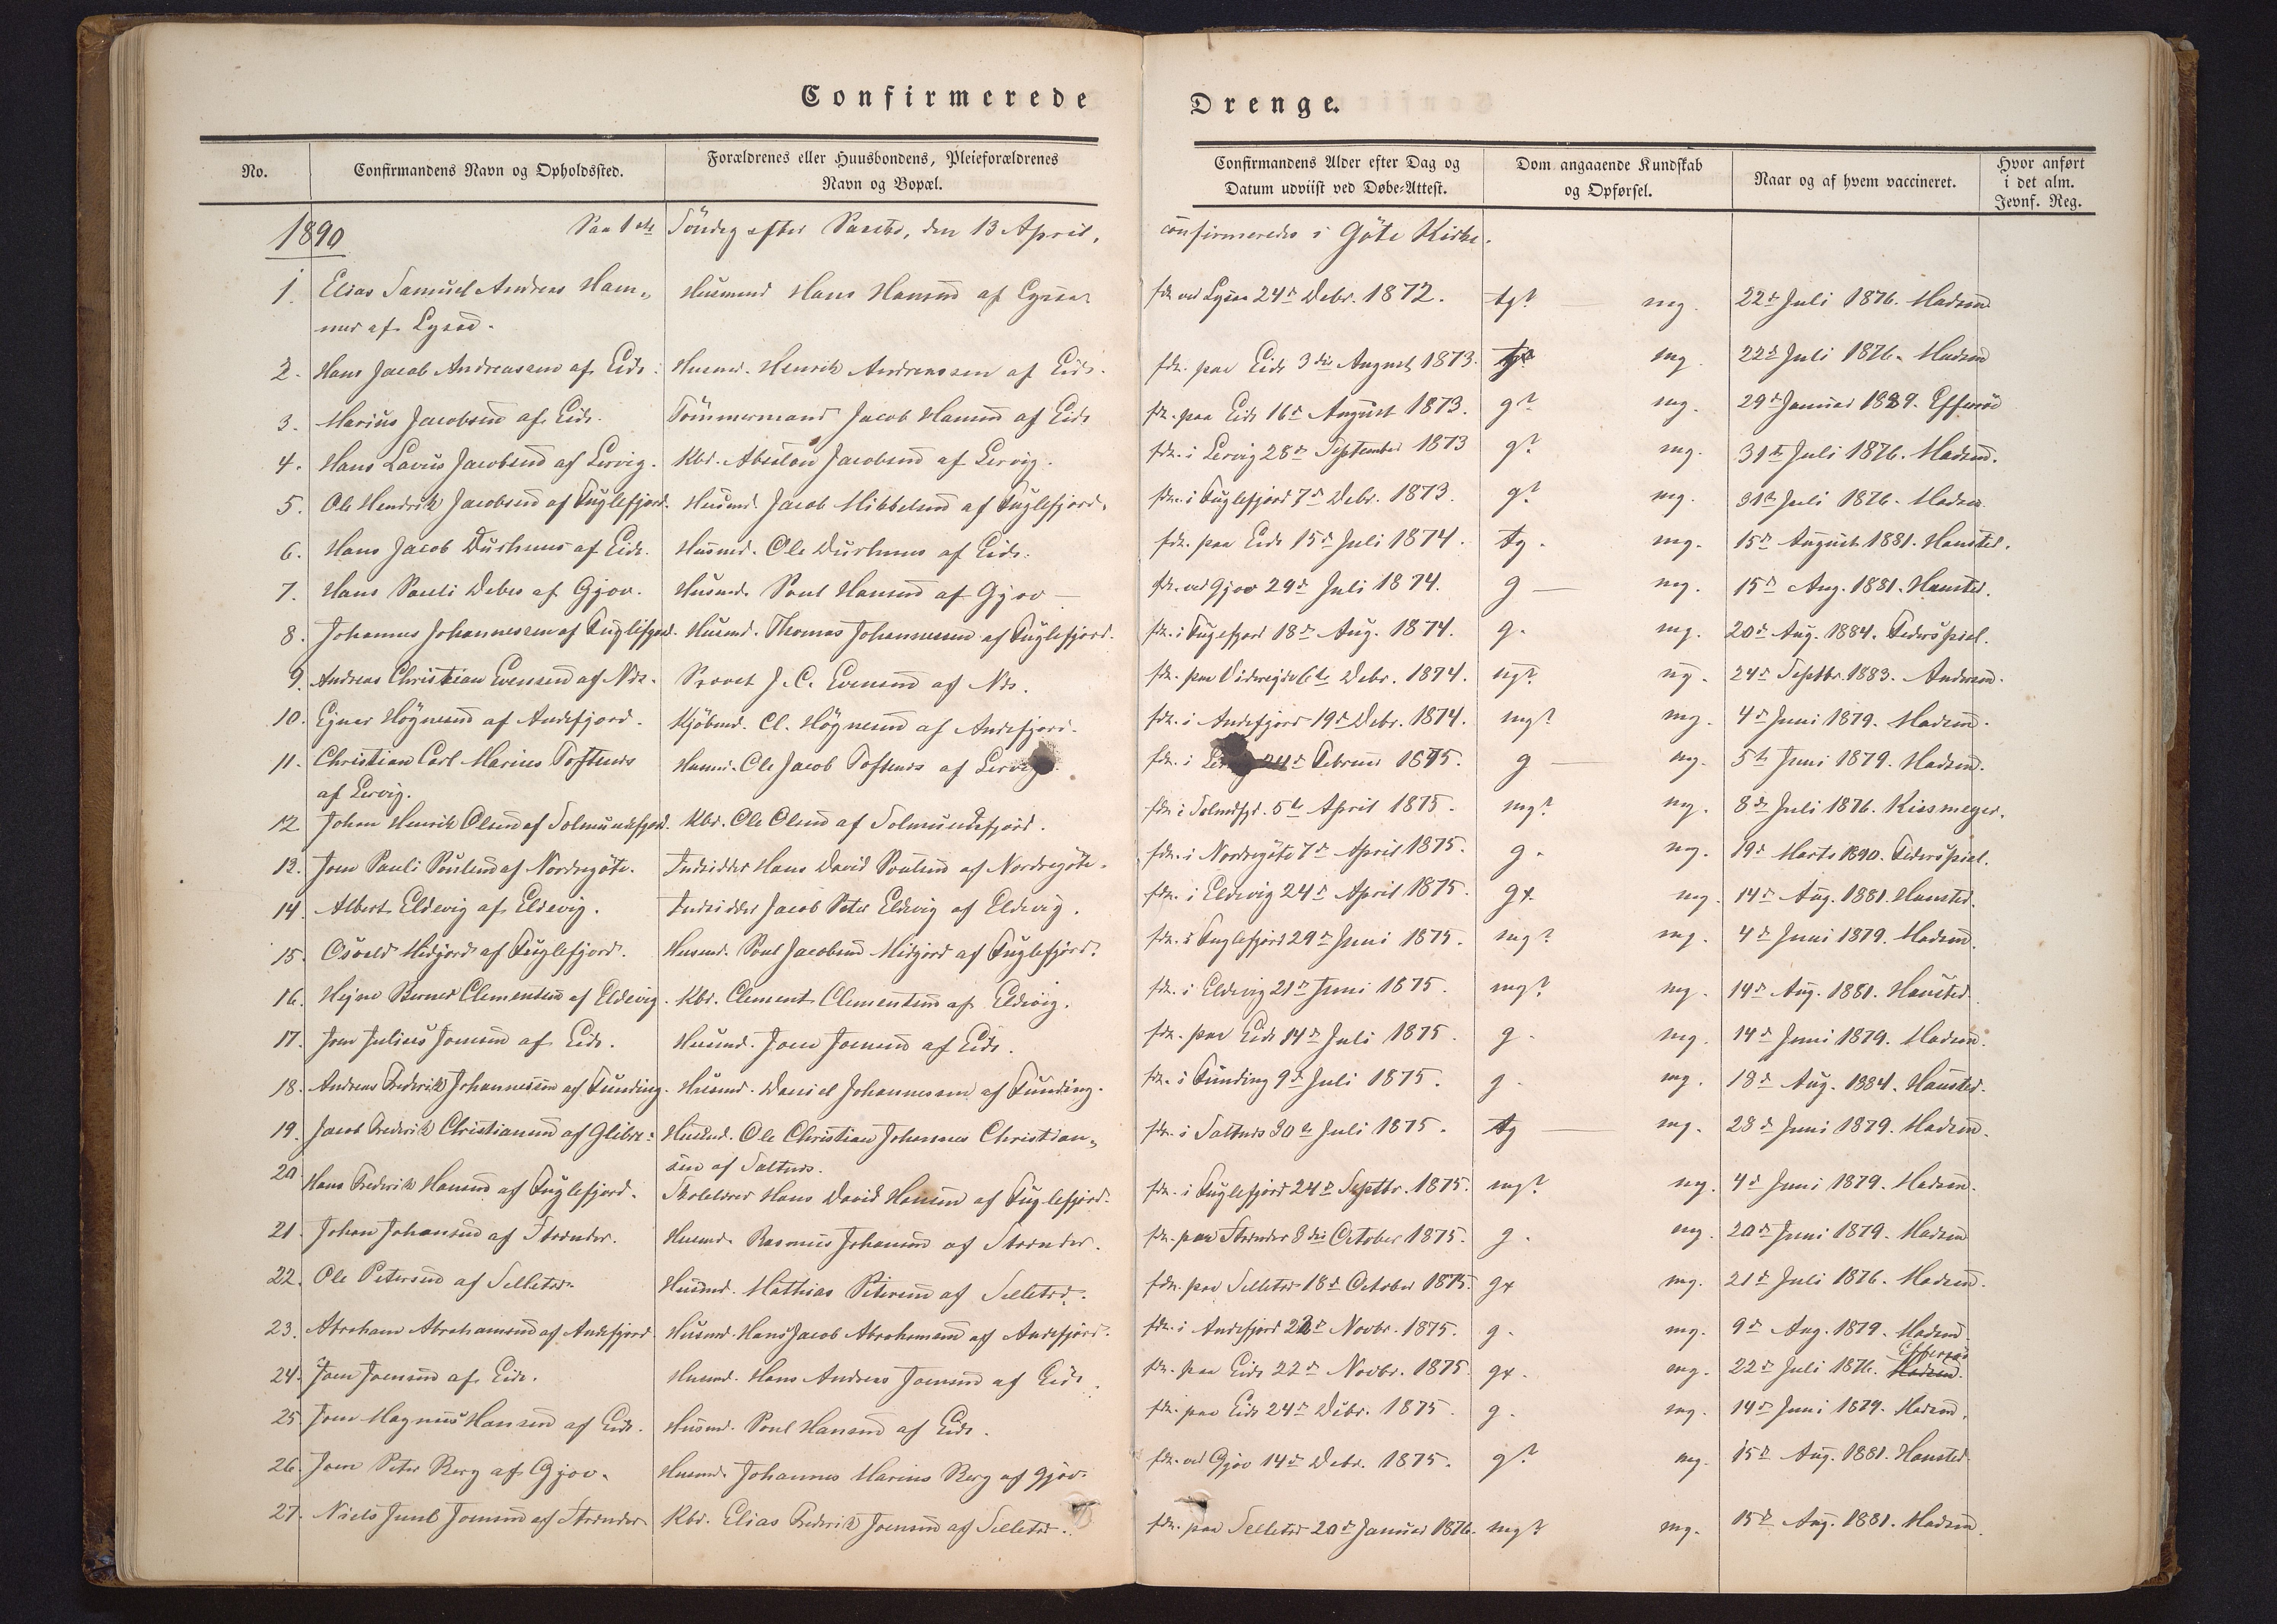 Confirmerede Drenge.
No. Confirmandens Navn og Opholdssted. Forældrenes eller Huusbondens, Pleieforældrenes Navn og Bopæl. Confirmandens Alder efter Dag og Datum udviist ved Døbe=Attest. Dom angaaende Kundskab og Opførsel. Naar og af hvem vaccineret. Hvor anført i det alm. Jevnf. Reg.
1890 Paa 1ste Söndag efter Paaske, den 13 April, confirmeredes i Göte Kirke.
1. Elias Samuel Andreas Ham„ Husmand Hans Hansen af 24de Debr. 1872. tg? mg. 22de Juli 1876. Madsen
mer af
2. Hans Jacob Andreassen af Eide. Husmd. Henrik Andreassen af Eide. fdt. paa Eide 3die August 1873. mg. 22de Juli 1876. Madsen
3. Marius Jacobsen af Eide. Tömmermand Jacob Hansen af Eide fdt. paa Eide 16de August 1873. g? mg. 29de Januar 1889. Effersöe
4. Hans Lavus Jacobsen af Lervig. Kbd. Absalon Jacobsen af Lervig. fdt. i Lervig 28de September 1873 g? mg. 31te Juli 1876. Madsen.
5. Ole Hendrik Jacobsen af Fuglefjord. Husmd. Jacob Mikkelsen af Fuglefjord. fdt. i Fuglefjord 7de Debr. 1873. g? mg. 31te Juli 1876. Madsen
6. Hans Jacob Durhuus af Eide. Husmd. Ole Durhuus af Eide. fdt. paa Eide 15de Juli 1874. tg. mg. 15de August 1881. Hansted.
7. Hans Pauli Debes af Gjov. Husmd. Poul Hansen af Gjov fdt. ved Gjov 29de Juli 1874. g mg. 15de Aug. 1881. Hansted.
8. Johannes Johannessen af Fuglefjord. Husmd. Thomas Johannessen af Fuglefjord. fdt. i Fuglefjord 18de Aug. 1874. g. mg. 20de Aug. 1884. Feders̈piel.
9. Andreas Christian Evensen af Næs. Provst J. C. Evensen af Næs. fdt. paa Videreide 6te Debr. 1874. ug? ug. 24de Septbr. 1883. Andersen.
10. Ejner Högnesen af Andefjord. Kjöbmd. Cl. Högnesen af Andefjord. fdt. i Andefjord 19de Debr. 1874. mg? mg. 4de Juni 1879. Madsen.
11. Christian Carl Marius Toftenæs Husmd. Ole Jacob Toftenæs af Lervig. fdt. i Februar 1875. g mg. 5te Juni 1879. Madsen.
af Lervig.
12 Johan Henrik Olsen af Solmundefjord. Kbd. Ole Olsen af Solmundefjord. fdt. i Solmdfjd. 5te April 1875. mg? mg. 8de Juli 1876. Kiesmeyer.
13. Joen Pauli Poulsen af Nordregöte. Indsidder Hans David Poulsen af Nordregöte. fdt. i Nordregöte 7de April 1875. g. mg. 19de Marts 1890. Federspiel.
14. Albert Eldevig af Eldevig. Indsidder Jacob Peter Eldevig af Eldevig. fdt. i Eldevig 24de April 1875. g+. mg. 14de Aug. 1881. Hansted.
15. Osvald Midjord af Fuglefjord. Husmd. Poul Jacobsen Midjord af Fuglefjord. fdt. i Fuglefjord 29de Juni 1875. mg? mg. 4de Juni 1879. Madsen.
16. Hejne Berner Clementsen af Eldevig. Kbd. Clement Clementsen af Eldevig. fdt. i Eldevig 21de Juni 1875. mg? mg. 14de Aug. 1881. Hansted.
17. Joen Julius Joensen af Eide. Husmd. Joen Joensen af Eide. fdt. paa Eide 14de Juli 1875. g. mg. 14de Juni 1879. Madsen.
18. Andreas Frederik Johannessen af Funding. Husmd. Daniel Johannessen af Funding. fdt. i Funding 9de Juli 1875. g. mg. 18de Aug. 1884. Hansted.
19. Jacob Frederik Christiansen af Glibre. Husmd. Ole Christian Johannes Christian„ fdt. i Saltnæs 30te Juli 1875. tg mg. 28de Juni 1879. Madsen.
sen af Saltnæs.
20 Hans Frederik Hansen af Fuglefjord. Skolelærer Hans David Hansen af Fuglefjord. fdt. i Fuglefjord 24de Septbr. 1875. mg? mg. 4de Juni 1879. Madsen.
21. Johan Johansen af Strænder. Husmd. Rasmus Johansen af Strænder. fdt. paa Strænder 8de October 1875. g. mg. 20de Juni 1879. Madsen
22. Ole Petersen af Selletræ. Husmd. Mathias Petersen af Selletræ. fdt. paa Selletræ 18de October 1875. g+ mg. 21de Juli 1876. Madsen.
23. Abraham Abrahamsen af Andefjord Husmd. Hans Jacob Abrahamsen af Andefjord. fdt. i Andefjord 22de Novbr. 1875. g. mg. 9de Aug. 1879. Madsen
24. Joen Joensen af Eide. Husmd. Hans Andreas Joensen af Eide. fdt. paa Eide 22de Novbr. 1875 g+. mg. 22de Juli 1876. Madsen. Effersöe
25. Joen Magnus Hansen af Eide. Husmd. Poul Hansen af Eide. fdt. paa Eide 24de Debr. 1875. g. mg. 14de Juni 1879. Madsen.
26. Joen Peter Berg af Gjov. Husmd. Johannes Marius Berg af Gjov. fdt. ved Gjov 14de Debr. 1875. g? mg. 15de Aug. 1881. Hansted
27. Niels Juul Joensen af Strænder Kbd. Elias Frederik Joensen af Selletræ. fdt. paa Selletræ 20de Januar 1876. mg? mg. 15de Aug. 1881. Madsen.